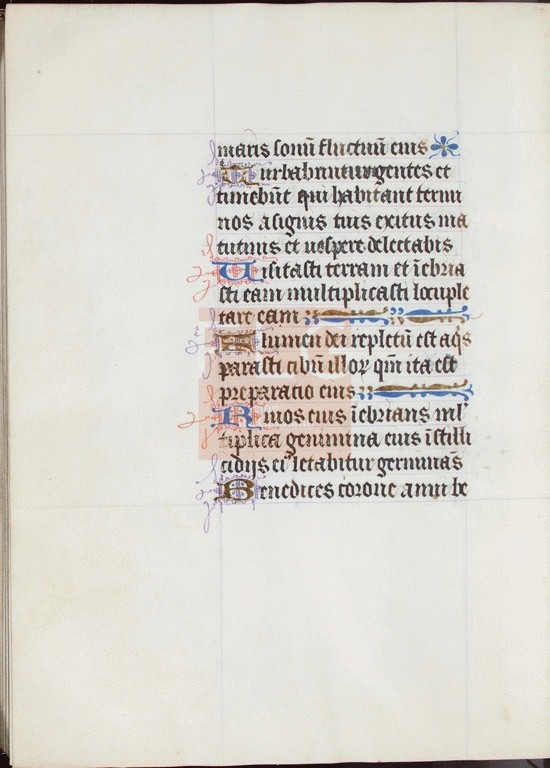 maris sonū fluctuū eius
Turbabuntur gentes et
timebūt qui habitant termi
nos a signis tuis exitus ma
tutinis et uespere delectabis
Uisitasti terram et īebria
sti eam multiplicasti locuple
tare eam
Flumen dei repletū est aqs
parasti cibū illoꝝ qm̄ ita est
preparatio eius
Riuos eius īebrians ml'
tiplica genimina eius ī stilli
cidijs ei' letabitur germinās
Benedices corone anni be